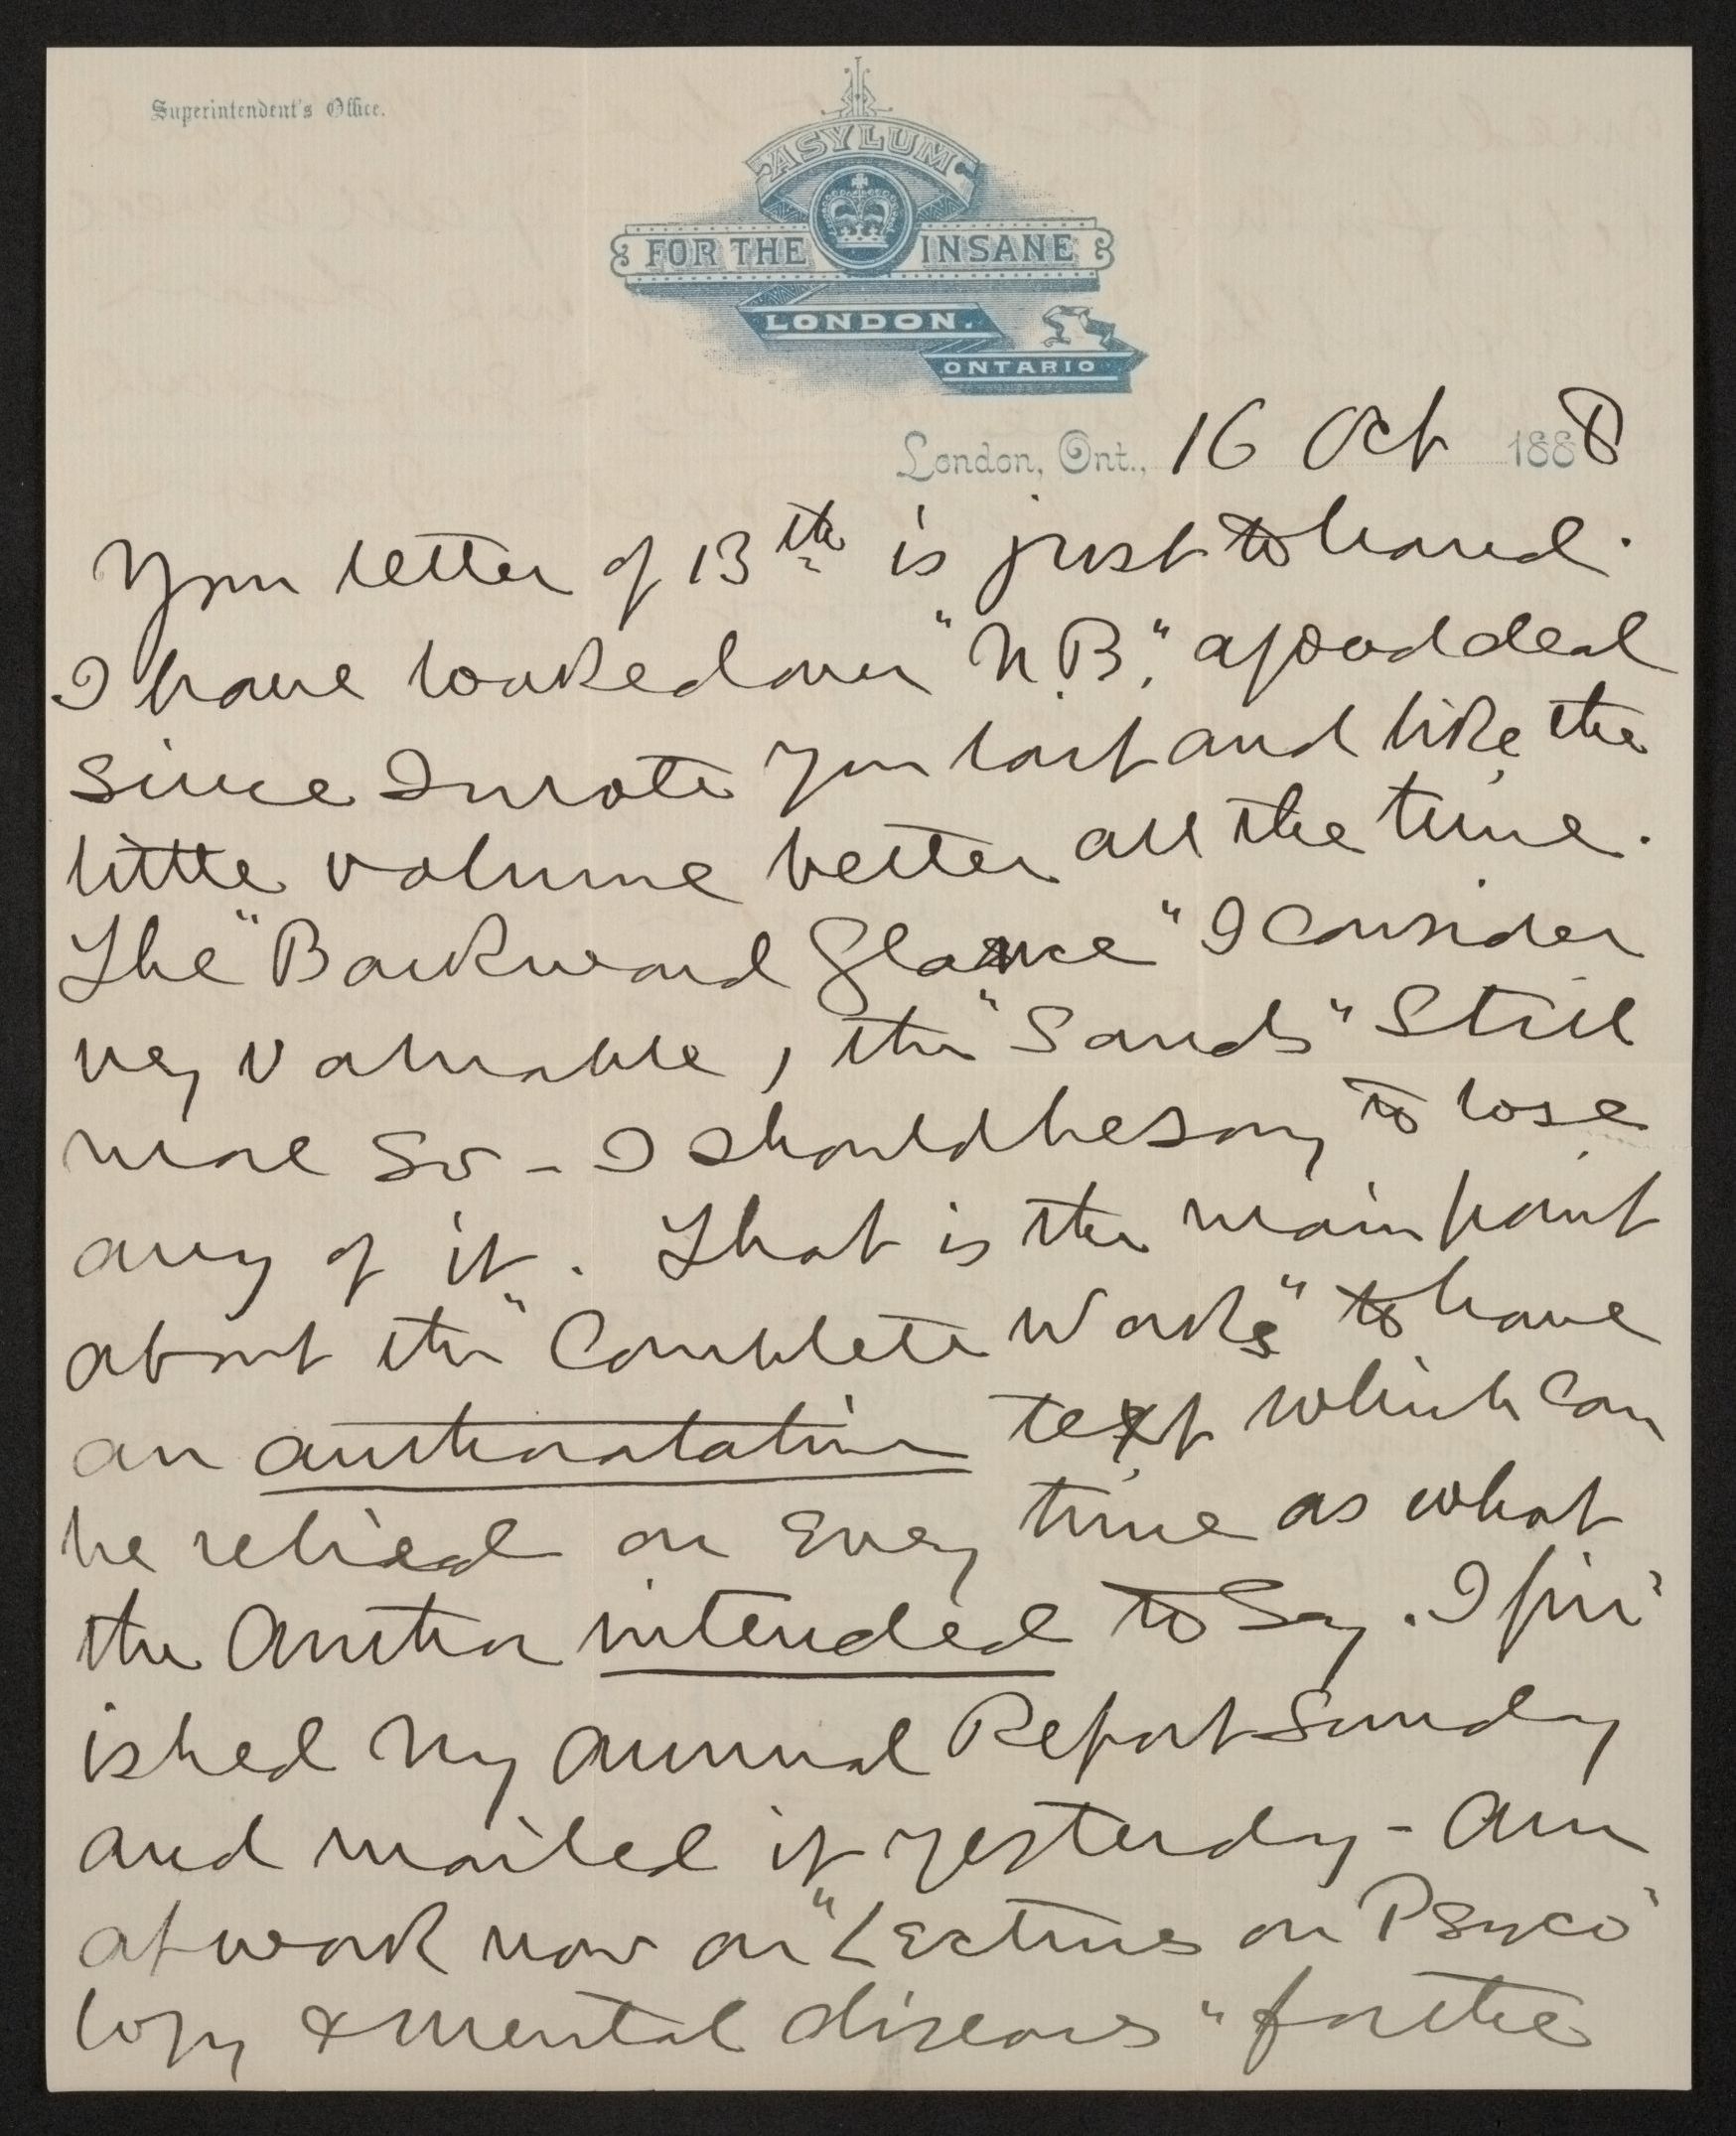 Superintendent's Office.
ASYLUM
FOR THE INSANE
LONDON.
ONTARIO
London, Ont., 16 Oct 1888
Your letter of 13th is just to hand.
I have looked over "N.B." a good deal
since I wrote you last and like the
little volume better all the time.
The "Backward Glance" I consider
very valuable, the "Sands" still
more so – I should be sorry to lose
any of it. That is the main point
about the "Complete Works" to have
an authoratative text which can
be relied on every time as what
the Author intended to say. I fin-
ished my annual Report Sunday
and mailed it yesterday – am
at work now on "Lectures on Psyco-
logy & mental diseases" for the